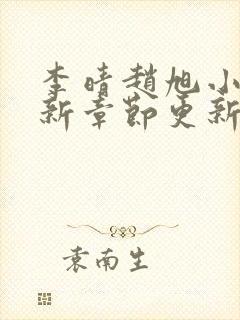 李晴趙旭小
新章節更新
袁南生